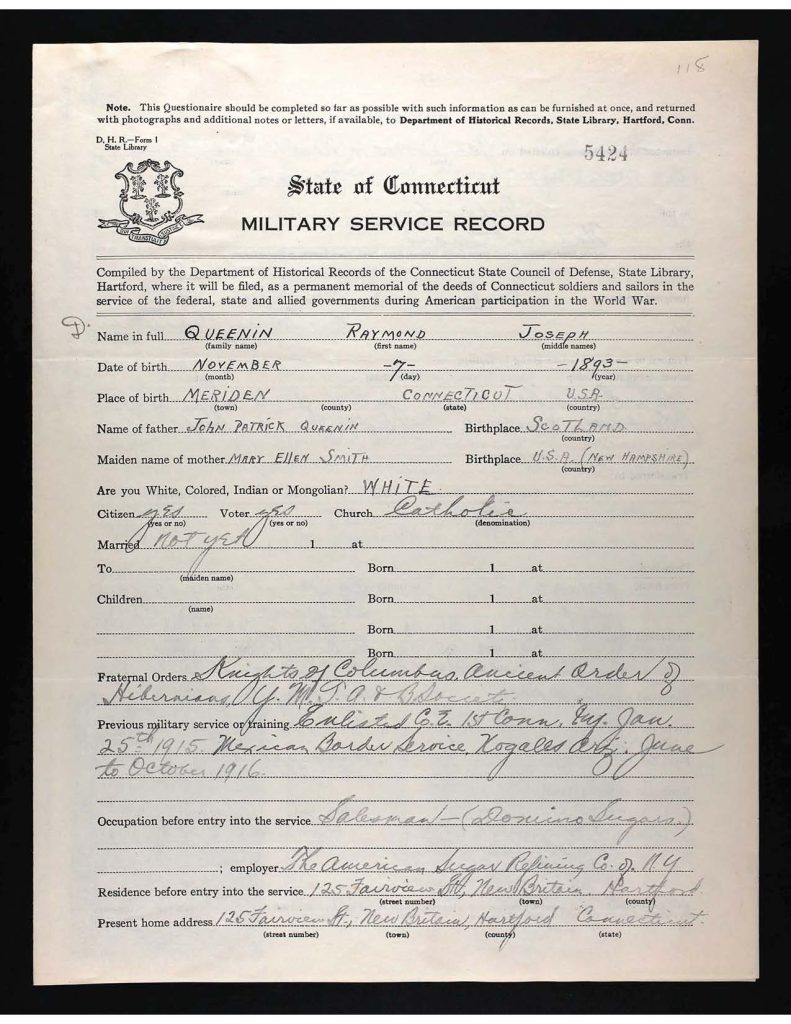 118
Note. This Questionaire should be completed so far as possible with such information as can be furnished at once, and returned
with photographs and additional notes or letters, if available, to Department of Historical Records, State Library, Hartford, Conn.
D. H. R.—Form 1
State Library
5424
State of Connecticut
MILITARY SERVICE RECORD
Compiled by the Department of Historical Records of the Connecticut State Council of Defense, State Library,
Hartford, where it will be filed, as a permanent memorial of the deeds of Connecticut soldiers and sailors in the
service of the federal, state and allied governments during American participation in the World War.
D.
Name in full QUEENIN RAYMOND JOSEPH
(family name) (first name) (middle names)
Date of birth NOVEMBER -7- -1893-
(month) (day) (year)
Place of birth MERIDEN CONNECTICUT U.S.A.
(town) (county) (state) (country)
Name of father JOHN PATRICK QUEENIN Birthplace SCOTLAND
(country)
Maiden name of mother MARY ELLEN SMITH Birthplace U.S.A. (NEW HAMPSHIRE)
(country)
Are you White, Colored, Indian or Mongolian? WHITE
Citizen yes Voter yes Church Catholic
(yes or no) (yes or no) (denomination)
Married not yet 1 at
To Born 1 at
(maiden name)
Children Born 1 at
(name)
Born 1 at
Born 1 at
Fraternal Orders Knights of Columbus, Ancient Order of
Hibernians, Y. M. T. A. & B Society
Previous military service or training Enlisted Co. E. 1st Conn. Inf. Jan.
25th 1915. Mexican Border Service, Nogales Ariz. June
to October 1916.
Occupation before entry into the service Salesman — (Domino Sugars.)
; employer The American Sugar Refining Co. of N.Y
Residence before entry into the service 125 Fairview St., New Britain, Hartford
(street number) (town) (county)
Present home address 125 Fairview St., New Britain, Hartford Connecticut.
(street number) (town) (county) (state)